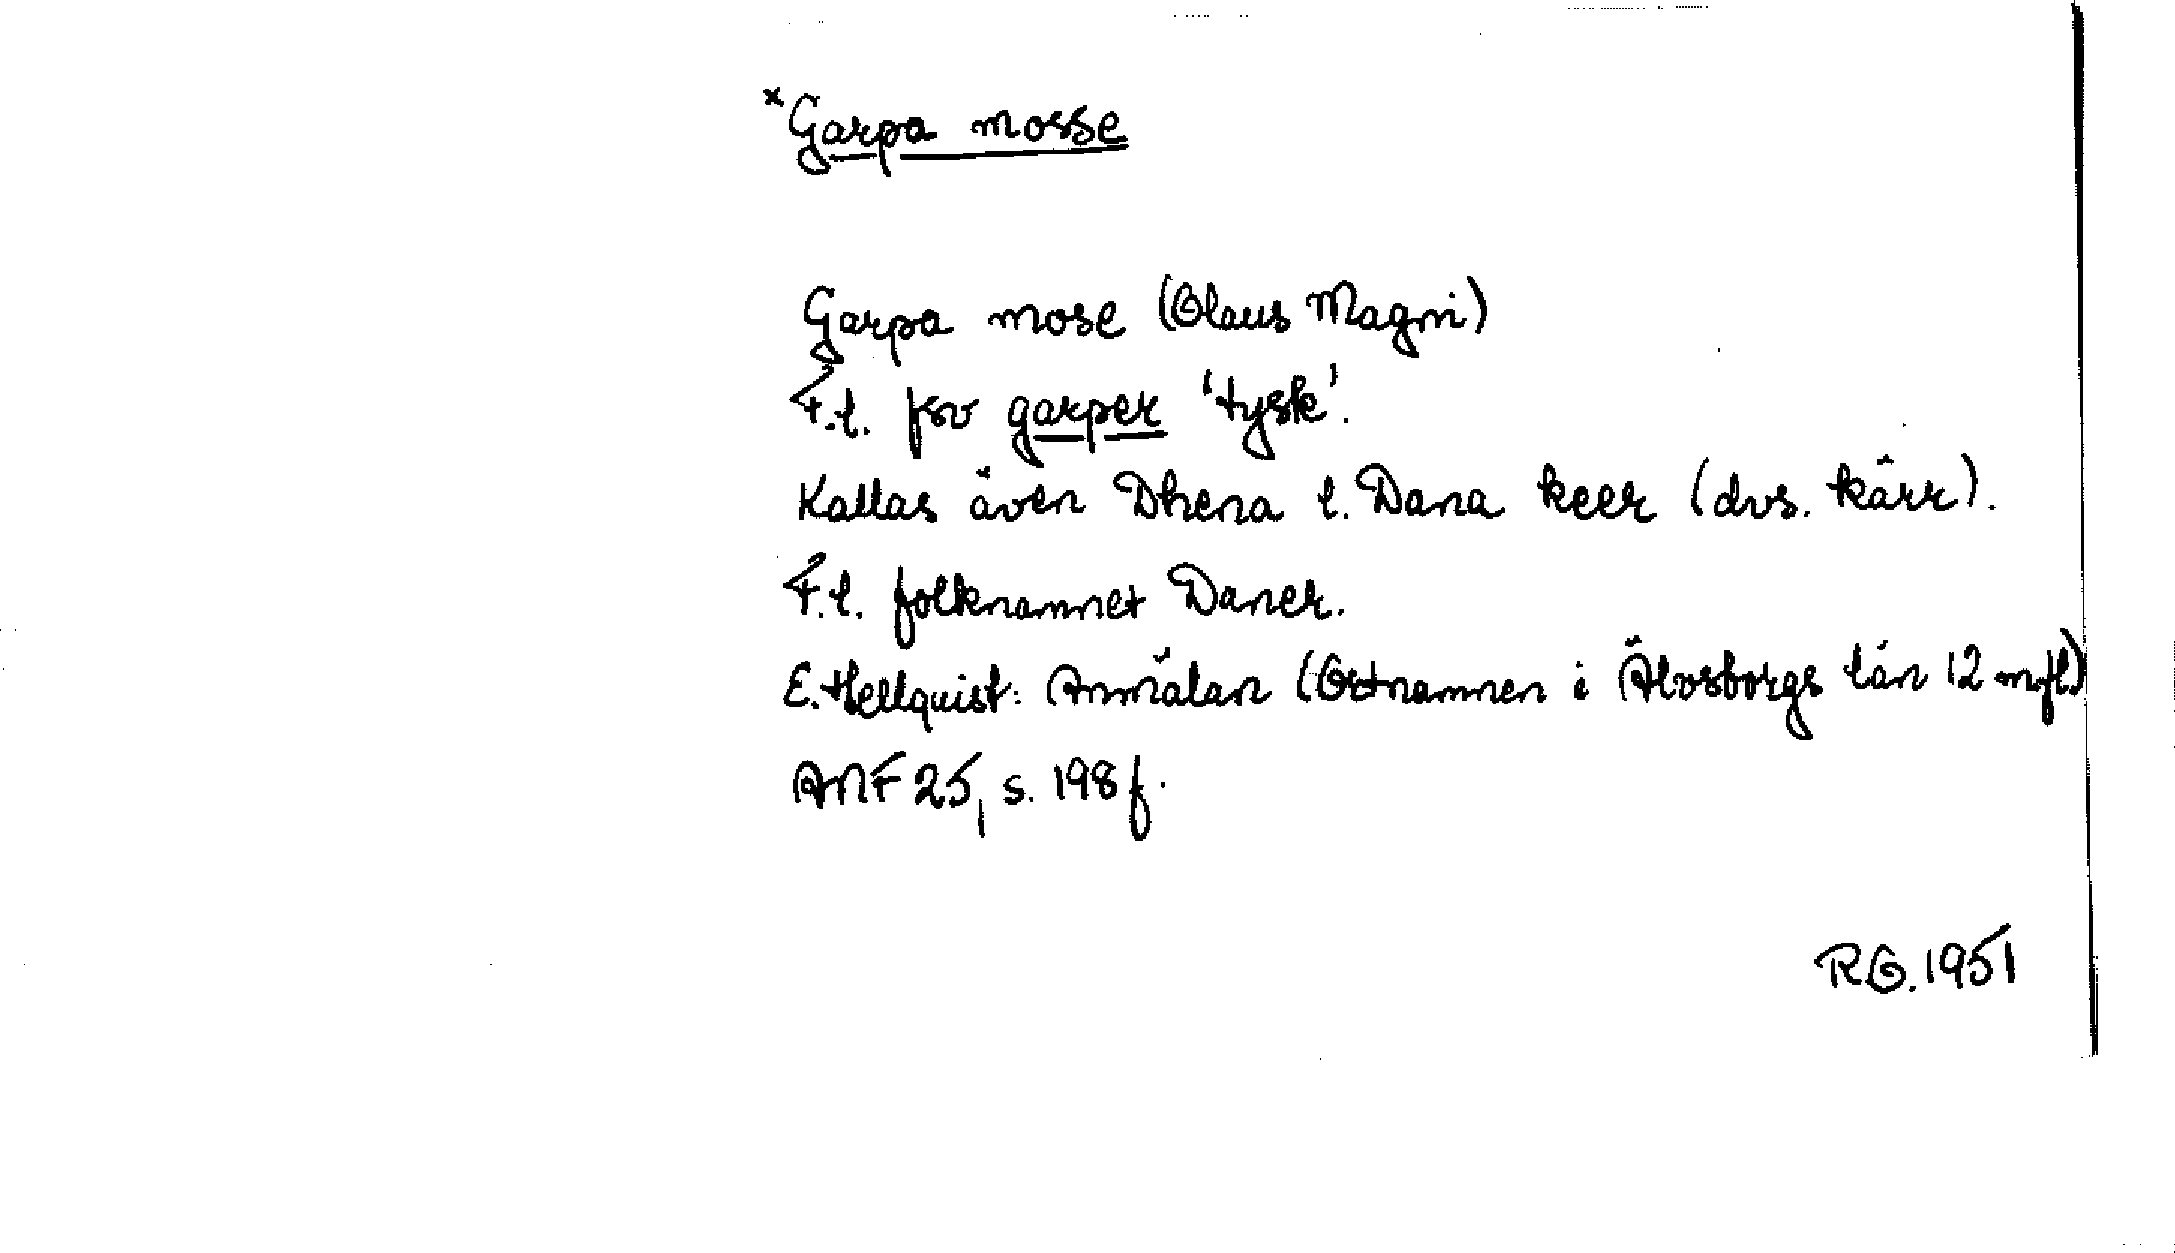 *Garpa mosse
Garpa mose (Olaus Magni)
F.l. fsv garper 'tysk'.
Kallas även Dhena l. Dana keer (dvs. kärr).
F.l. folknamnet Daner.
E. Hellquist: Anmälan (Ortnamnen i Älvsborgs län 12 mfl.)
ANF 25, s. 198 f.
R.G. 1951